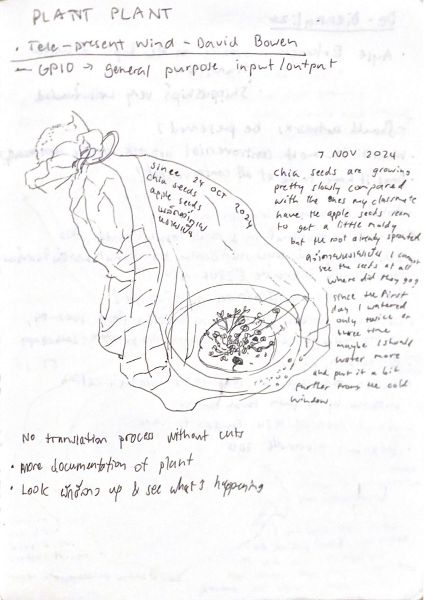 PLANT PLANT
• Tele-present wind - David Bowen
- GPIO → general purpose input/output
since 24 OCT 2024
chia seeds
apple seeds
7 NOV 2024
chia seeds are growing
pretty slowly compared
with the ones my classmate
have. the apple seeds seem
to get a little moldy
but the root already sprouted
I cannot
see the seeds at all
where did they go?
since the first
day I watered
only twice or
three time
maybe I should
water more
and put it a bit
further from the cold
window.
No translation process without cuts
• More documentation of plant
• Look up & see what's happening